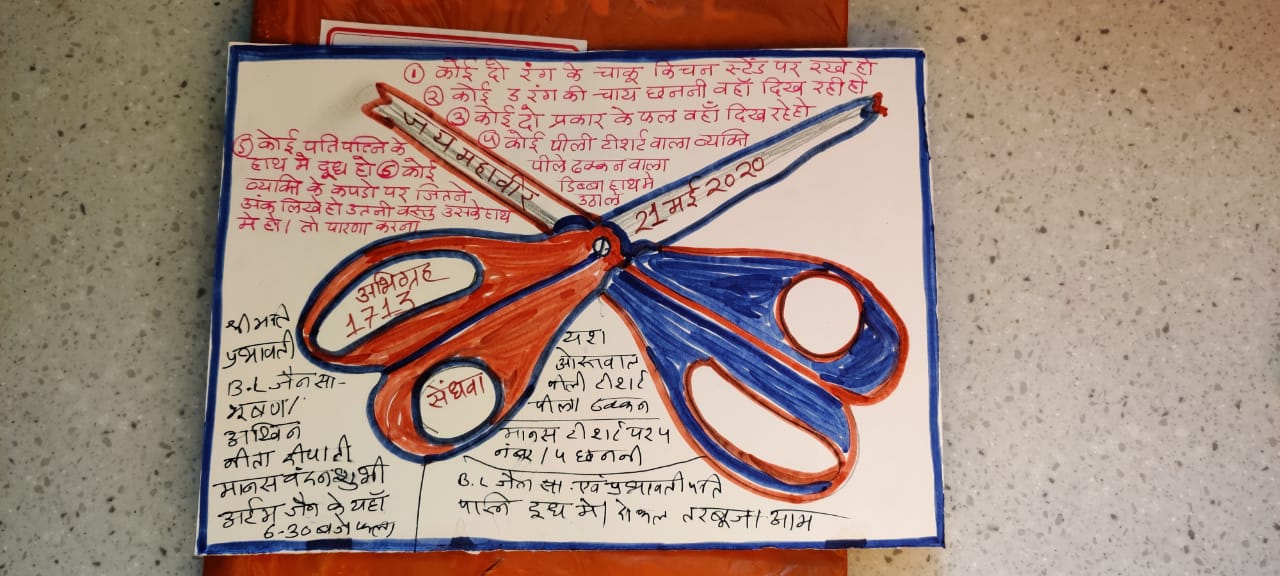 ① कोई दो रंग के चाकू किचन स्टेंड पर रखे हो
② कोई 3 रंग की चाय छननी वहाँ दिख रही हो
③ कोई दो प्रकार के फल वहाँ दिख रहे हो
④ कोई पीली टीशर्ट वाला व्यक्ति
पीले ढक्कन वाला
डिब्बा हाथ मे
उठाले
⑤ कोई पति पत्नि के
हाथ मे दूध हो ⑥ कोई
व्यक्ति के कपडो पर जितने
अंक लिखे हो उतनी वस्तु उसके हाथ
मे हो। तो पारणा करना
जय महावीर
21 मई 2020
अभिग्रह
1713
सेंधवा
श्रीमति
प्रभावती
B.L जैन सा-
भूषण/
अश्विन
नीता
मानस वंदन शुभी
जैन के यहाँ
6-30 बजे
यश
ओस्तवाल
पीली टीशर्ट
पीला ढक्कन
मानस टीशर्ट पर 5
नंबर / 5 छननी
B.L जैन सा एवं प्रभावती पति
पत्नि दूध मे। तरबूजा आम